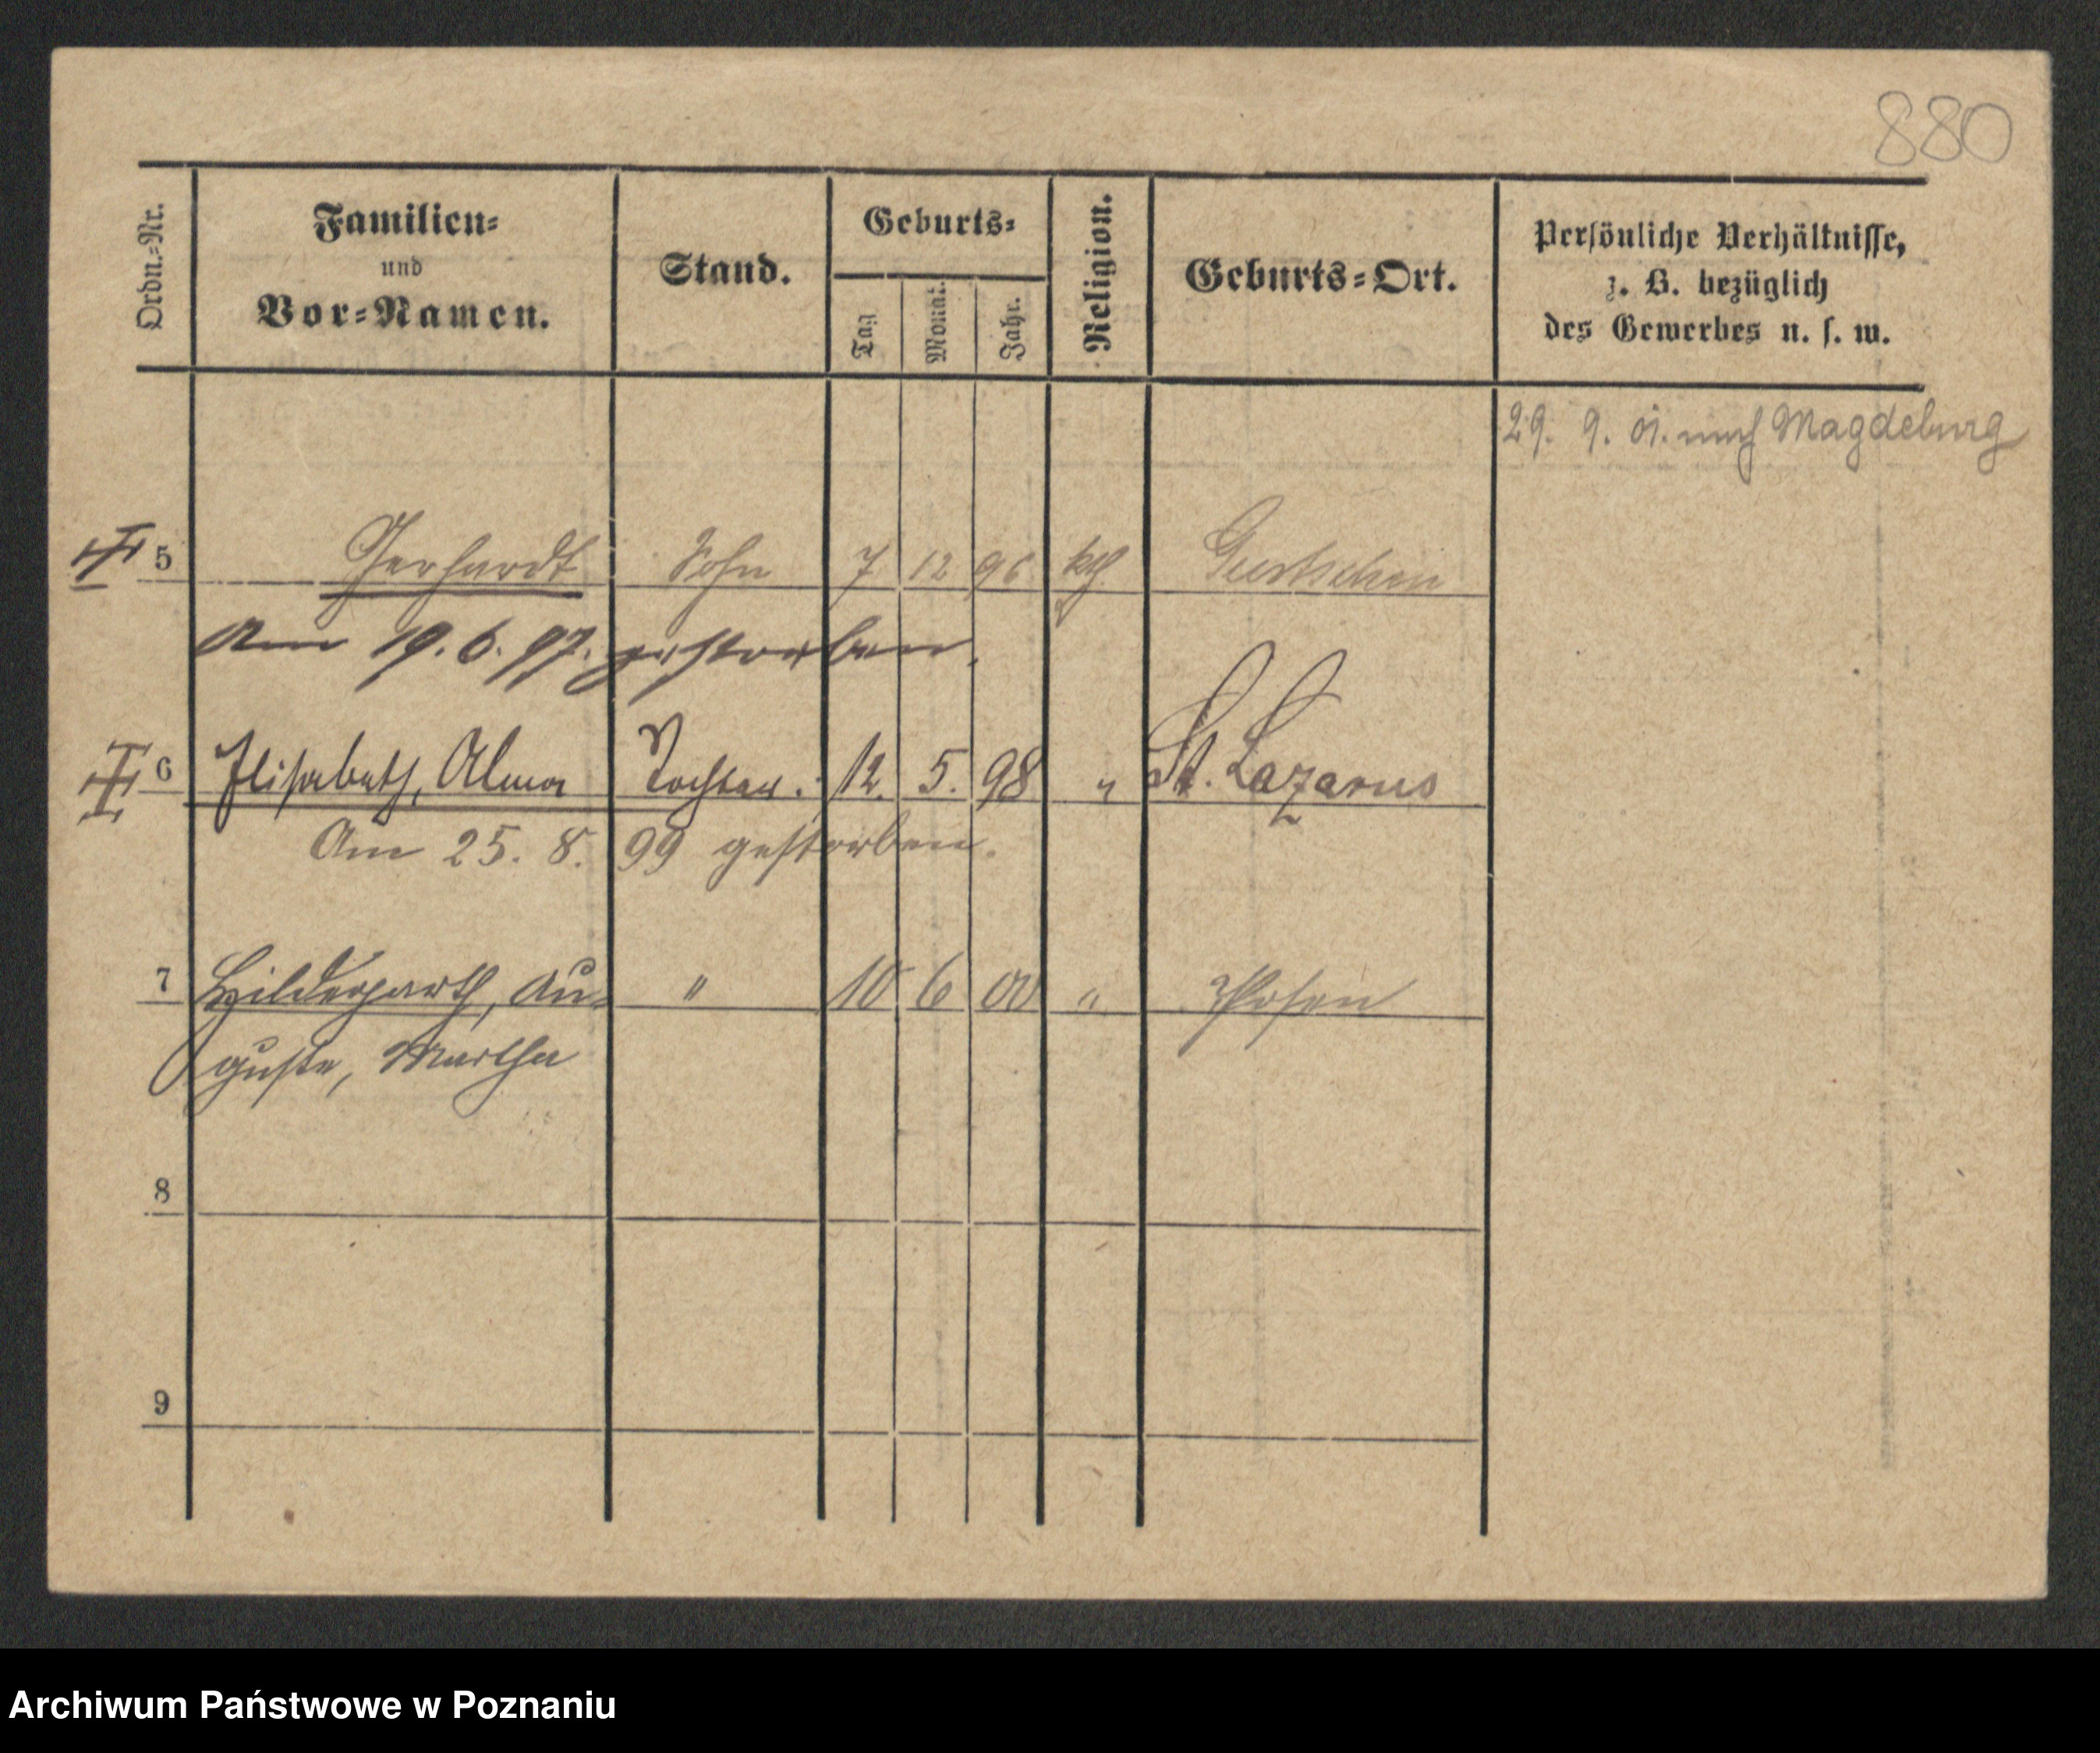 880
Ordn.-Nr.
Familien-
und
Vor-Namen.
Stand.
Geburts-
Tag
Monat.
Jahr.
Religion.
Geburts-Ort.
Persönliche Verhältnisse,
z. B. bezüglich
des Gewerbes u. s. w.
29. 9. 01. nach Magdeburg
5 Gerhardt Sohn 7 12 96
Am 19. 6. 97. gestorben.
6 Elisabeth, Alma Tochter. 12. 5. 98 " St. Lazarus
Am 25. 8. 99 gestorben.
7 Hildegarth, Au- " 10 6 00 " Posen
guste, Martha
8
9
Archiwum Państwowe w Poznaniu